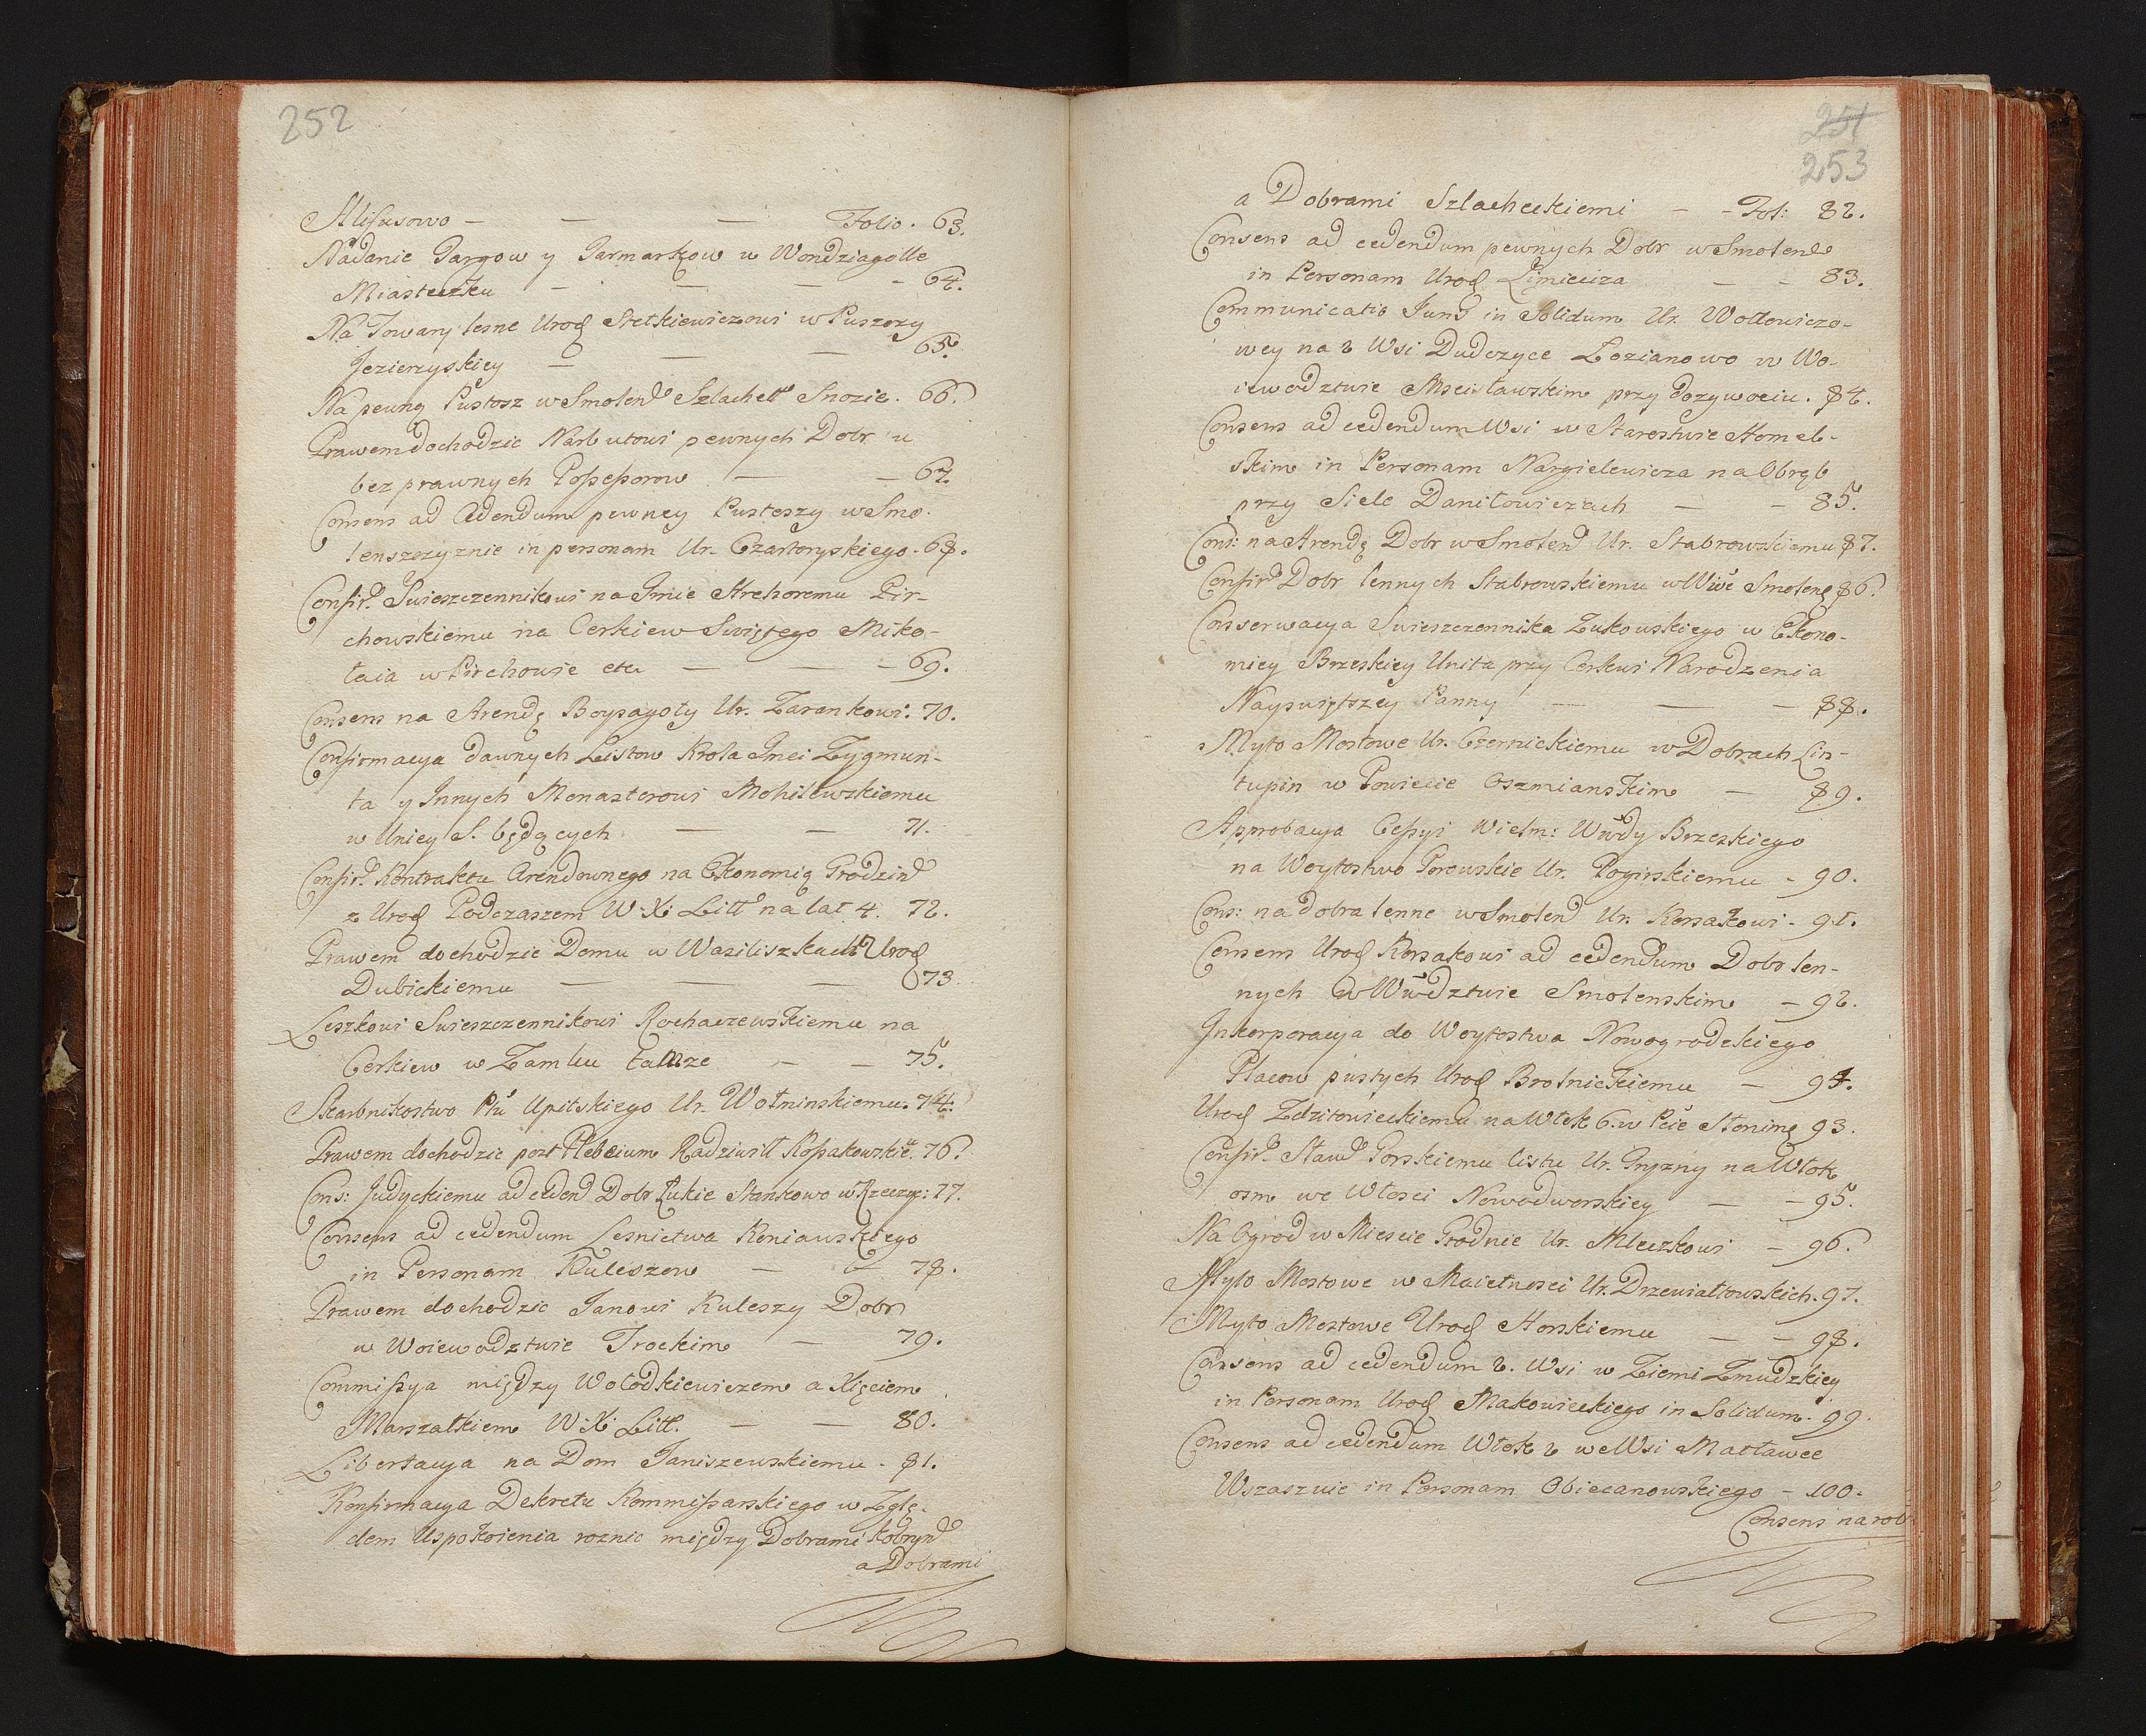 252
Alifusowo — — — Folio. 63.
Nadanie Targow y Jarmarkow w Wondziagolle
Miasteczku — — — - 64.
Na Towary lesne Urod Stetkiewiczowi w Puszczy
Jezierzyskiey — — — 65.
Na pewną Pustosz w Smolend Szlachett Snozie. 66.
Prawem dochodzic Narbutowi pewnych Dobr u
bez prawnych Possessorow — - 67.
Consens ad Cedendum pewney Pustoszy w Smo-
lenszczyznie in personam Ur. Czartoryskiego. 68.
Confir. Swieszczennikowi na Imie Hrehoremu Pir-
chowskiemu na Cerkiew Swiętego Miko-
łaia w Pirchowie etc — — - 69.
Consens na Arendę Boysagoły Ur. Zarankowi. 70.
Confirmacya dawnych Listow Krola Imci Zygmun-
ta y Innych Monasterowi Mohilewskiemu
w Uniey S. będących — — 71.
Confir. Kontraktu Arendownego na Ekonomią Grodzind
z Urod Podczaszem W. X. Litt na lat 4. 72.
Prawem dochodzic Domu w Wasiliszkach Urod
Dubickiemu — — — 73.
Leszkowi Swieszczennikowi Rochaczewskiemu na
Cerkiew w Zamku tamze - - 75.
Skarbnikostwo Ptu Upitskiego Ur. Wolninskiemu. 74.
Prawem dochodzic post Plebeium Radziwiłł Kossakowskie. 76.
Cons: Judyckiemu ad cedend Dobr Łukie Stankowo w Rzeczyc: 77.
Consens ad cedendum Lesnictwa Koniawskiego
in Personam Kuleszow — — 78.
Prawem dochodzic Janowi Kuleszy Dobr
w Woiewodztwie Trockim — 79.
Commissya między Wołodkiewiczem a Xięciem
Marszałkiem W. X. Litt. — — 80.
Libertacya na Dom Janiszewskiemu - 81.
Konfirmacya Dekretu Kommissarskiego w Zglę-
dem Uspokoienia roznic między Dobrami Kobrynd
a Dobrami
251
253
a Dobrami Szlacheckiemi — - Fol: 82.
Consens ad cedendum pewnych Dobr w Smolend
in Personam Urod Limiecza — - 83.
Communicatio Jund in Solidum Ur. Wołłowiczo-
wey na 2 Wsi Dudczyce Łozianowo w Wo-
iewodztwie Mscisławskim przy dozywociu. 84.
Consens ad cedendum Wsi w Starostwie Homel-
skim in Personam Nargielewicza na Obręb
przy Siele Daniłowiczach — - 85.
Cons: na Arendę Dobr w Smolend Ur. Stabrowskiemu 87.
Confird Dobr lennych Stabrowskiemu w Wwie Smolens 86.
Conserwacya Swieszczennika Zukowskiego w Ekono-
miey Brzeskiey Unita przy Cerkwi Narodzenia
Nayswiętszey Panny — — - 88.
Myto Mostowe Ur. Czernickiemu w Dobrach Lin-
tupin w Powiecie Oszmianskim — 89.
Approbacya Cessyi Wielm: Wwdy Brzeskiego
na Woytostwo Porowskie Ur. Poginskiemu - 90.
Cons: na dobra lenne w Smolend Ur. Korsakowi - 91.
Consens Urod Korsakowi ad cedendum Dobr len-
nych w Wwdztwie Smolenskim - 92.
Inkorporacya do Woytostwa Nowogrodskiego
Placow pustych Urod Brolnickiemu — 94.
Urod Zdzitowieckiemu na Włok 6. w Pcie Słonims 93.
Confir. Stawd Gorskiemu listu Ur. Gryzny na Włok
osm we Włosci Nowodworskiey — - 95.
Na Ogrod w Miescie Grodnie Ur. Mleczkowi - 96.
Myto Mostowe w Maietnosci Ur. Drzewiałtowskich. 97.
Myto Mostowe Urod Horskiemu — - 98.
Consens ad cedendum 2. Wsi w Ziemi Zmudzkiey
in Personam Urod Makowieckiego in Solidum. 99.
Consens ad cedendum Włok 2 we Wsi Matławce
Wszasznie in Personam Obiecanowskiego - 100.
Consens na rob